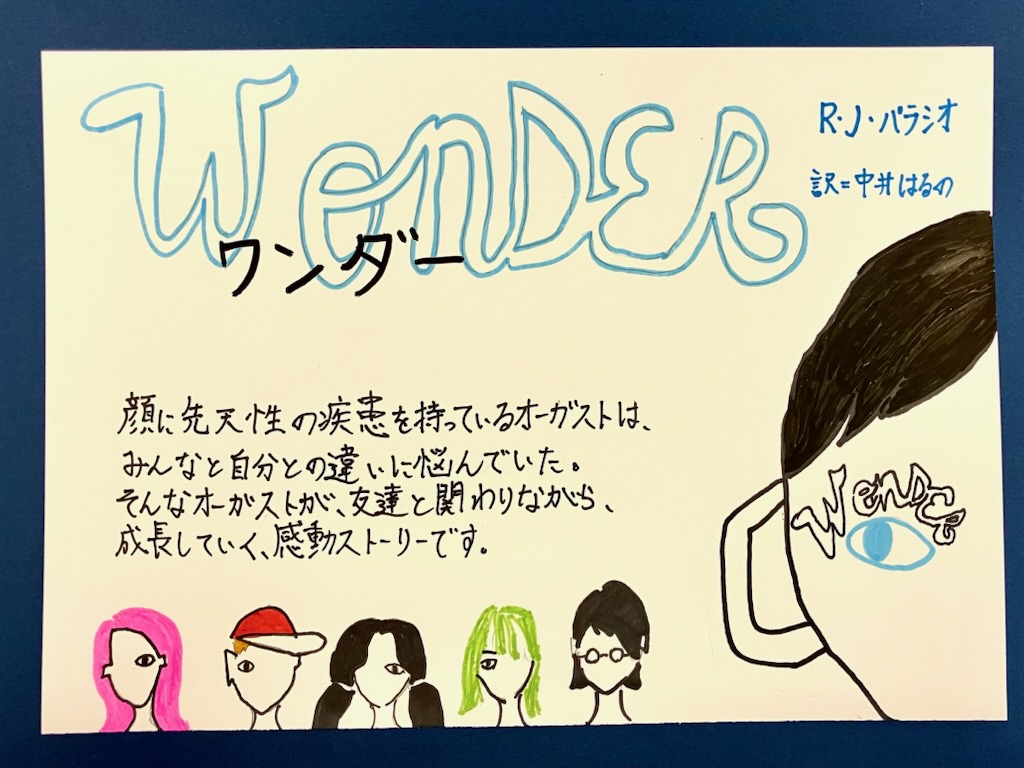 WonDER
ワンダー
R・J・パラシオ
訳=中井はるの
顔に先天性の疾患を持っているオーガストは、
みんなと自分との違いに悩んでいた。
そんなオーガストが、友達と関わりながら、
成長していく、感動ストーリーです。
WonDER